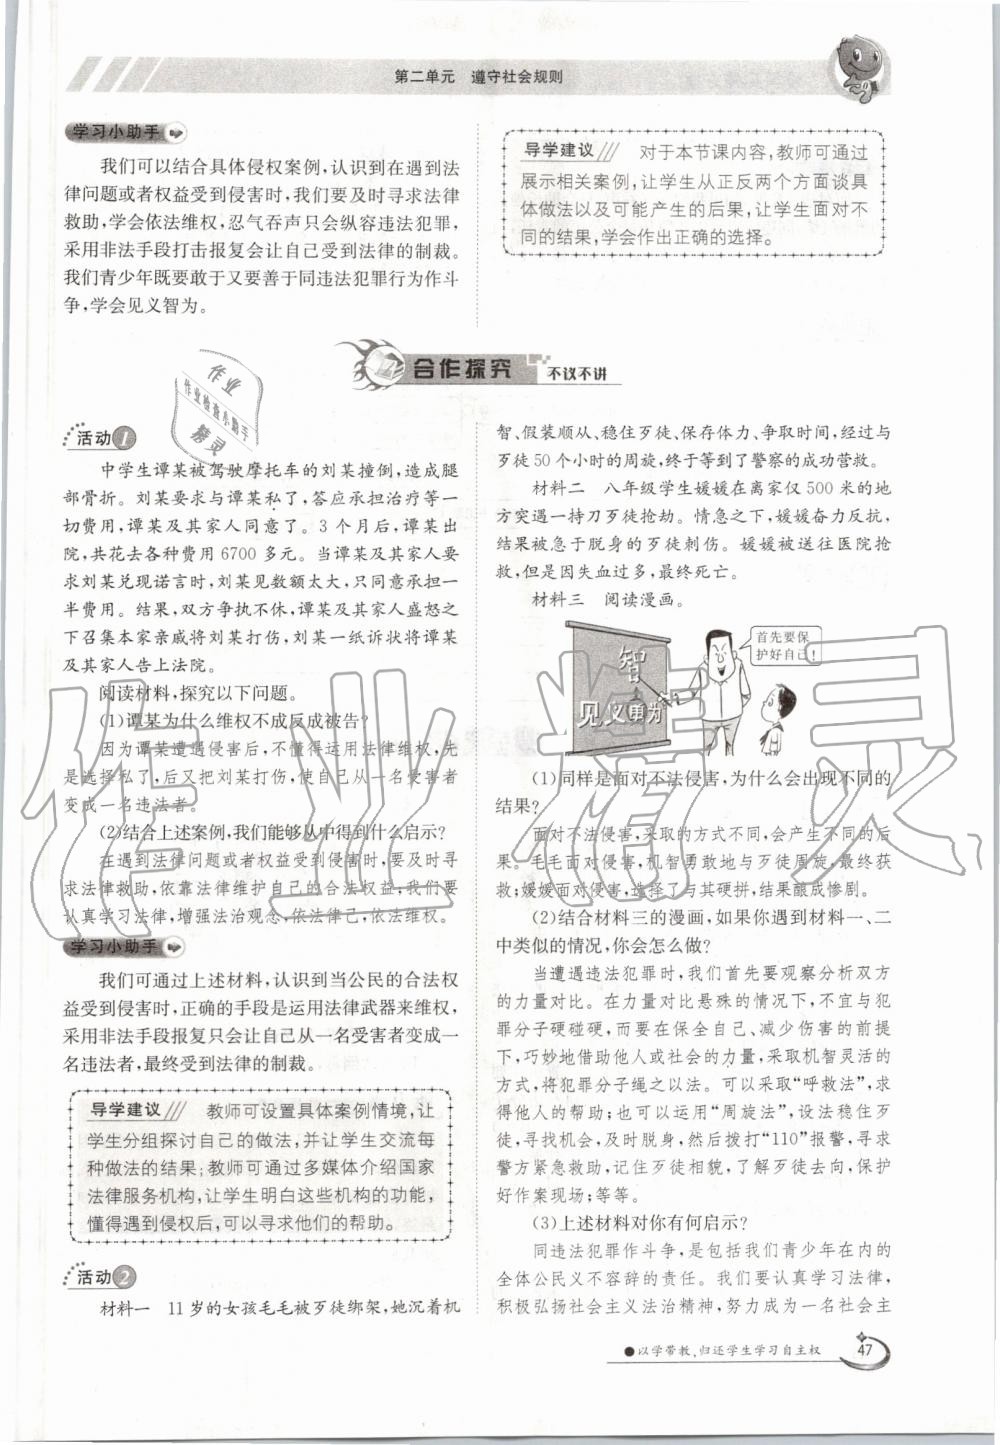 第二单元 遵守社会规则
学习小助手
我们可以结合具体侵权案例,认识到在遇到法
律问题或者权益受到侵害时,我们要及时寻求法律
救助,学会依法维权,忍气吞声只会纵容违法犯罪,
采用非法手段打击报复会让自己受到法律的制裁。
我们青少年既要敢于又要善于同违法犯罪行为作斗
争,学会见义智为。
导学建议 对于本节课内容,教师可通过
展示相关案例,让学生从正反两个方面谈具
体做法以及可能产生的后果,让学生面对不
同的结果,学会作出正确的选择。
合作探究 不议不讲
活动1
中学生谭某被驾驶摩托车的刘某撞倒,造成腿
部骨折。刘某要求与谭某私了,答应承担治疗等一
切费用,谭某及其家人同意了。3 个月后,谭某出
院,共花去各种费用 6700 多元。当谭某及其家人要
求刘某兑现诺言时,刘某见数额太大,只同意承担一
半费用。结果,双方争执不休,谭某及其家人盛怒之
下召集本家亲戚将刘某打伤,刘某一纸诉状将谭某
及其家人告上法院。
阅读材料,探究以下问题。
(1)谭某为什么维权不成反成被告?
因为谭某遭遇侵害后,不懂得运用法律维权,先
是选择私了,后又把刘某打伤,使自己从一名受害者
变成一名违法者。
(2)结合上述案例,我们能够从中得到什么启示?
在遇到法律问题或者权益受到侵害时,要及时寻
求法律救助,依靠法律维护自己的合法权益;我们要
认真学习法律,增强法治观念,依法律己,依法维权。
学习小助手
我们可通过上述材料,认识到当公民的合法权
益受到侵害时,正确的手段是运用法律武器来维权,
采用非法手段报复只会让自己从一名受害者变成一
名违法者,最终受到法律的制裁。
导学建议 教师可设置具体案例情境,让
学生分组探讨自己的做法,并让学生交流每
种做法的结果;教师可通过多媒体介绍国家
法律服务机构,让学生明白这些机构的功能,
懂得遇到侵权后,可以寻求他们的帮助。
活动2
材料一 11 岁的女孩毛毛被歹徒绑架,她沉着机
智、假装顺从、稳住歹徒、保存体力、争取时间,经过与
歹徒 50 个小时的周旋,终于等到了警察的成功营救。
材料二 八年级学生媛媛在离家仅 500 米的地
方突遇一持刀歹徒抢劫。情急之下,媛媛奋力反抗,
结果被急于脱身的歹徒刺伤。媛媛被送往医院抢
救,但是因失血过多,最终死亡。
材料三 阅读漫画。
智
见义勇为
首先要保
护好自己!
(1)同样是面对不法侵害,为什么会出现不同的
结果?
面对不法侵害,采取的方式不同,会产生不同的后
果。毛毛面对侵害,机智勇敢地与歹徒周旋,最终获
救;媛媛面对侵害,选择了与其硬拼,结果酿成惨剧。
(2)结合材料三的漫画,如果你遇到材料一、二
中类似的情况,你会怎么做?
当遭遇违法犯罪时,我们首先要观察分析双方
的力量对比。在力量对比悬殊的情况下,不宜与犯
罪分子硬碰硬,而要在保全自己、减少伤害的前提
下,巧妙地借助他人或社会的力量,采取机智灵活的
方式,将犯罪分子绳之以法。可以采取“呼救法”,求
得他人的帮助;也可以运用“周旋法”,设法稳住歹
徒,寻找机会,及时脱身,然后拨打“110”报警,寻求
警方紧急救助,记住歹徒相貌,了解歹徒去向,保护
好作案现场;等等。
(3)上述材料对你有何启示?
同违法犯罪作斗争,是包括我们青少年在内的
全体公民义不容辞的责任。我们要认真学习法律,
积极弘扬社会主义法治精神,努力成为一名社会主
●以学带教,归还学生学习自主权
47
作业
作业检查小助手
精灵
作业精灵